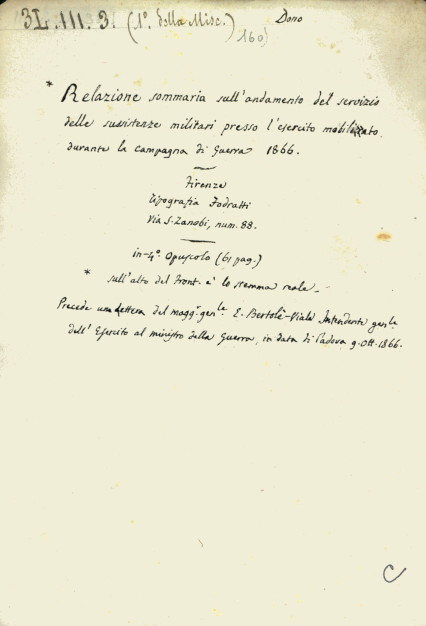 3L.III.3. (1º. della Misc.)
160)
Dono
* Relazione sommaria sull'andamento del servizio
delle sussistenze militari presso l'esercito mobilizzato
durante la campagna di Guerra 1866.
Firenze
tipografia Fodratti
Via S. Zanobi, num. 88.
in-4º. Opuscolo (61 pag.)
* sull'alto del front. è lo stemma reale.
Precede una lettera del magg. genle. E. Bertolè-Viale Intendente genle.
dell'Esercito al ministro della Guerra, in data di Padova 9. Ott. 1866.
C